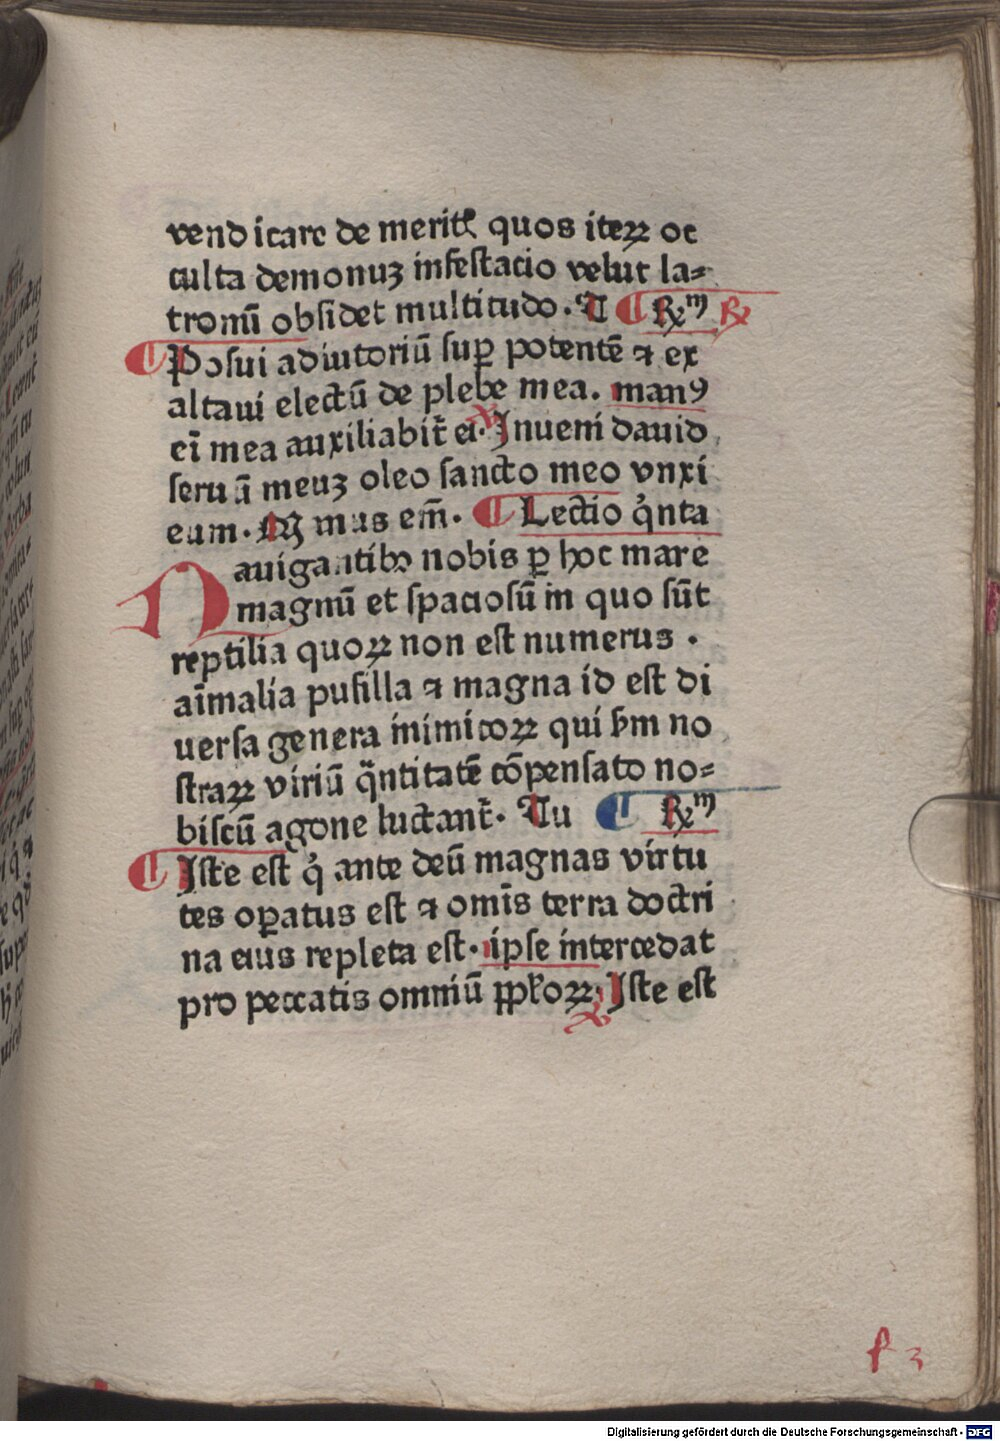 vendicare de meritꝭ quos iteꝝ oc
culta demonuꝫ infestacio velut la⸗
tronū obsidet multitudo. T ¶ ℞ᵐ ℞
¶ Posui adiutoriū suꝑ potentē ⁊ ex
altaui electū de plebe mea. manꝯ
eī mea auxiliabit̄ ei. Inueni dauid
seruū meuꝫ oleo sancto meo vnxi
eum. Mꝯ mus em̄. ¶ Lectio qͥnta
Nauigantibꝰ nobis ꝑ hoc mare
magnū et spaciosū in quo sūt
reptilia quoꝝ non est numerus .
aīmalia pusilla ⁊ magna id est di
uersa genera inimicoꝝ qui ẜm no
straꝝ viriū qͣntitatē cōpensato no⸗
biscū agone luctant̄. Tu ¶ ℞ᵐ
¶ Iste est qͥ ante deū magnas virtu
tes oꝑatus est ⁊ omīs terra doctri
na eius repleta est. ipse intercedat
pro peccatis omniū ppl'oꝝ, Iste est
f 3
Digitalisierung gefördert durch die Deutsche Forschungsgemeinschaft - DFG